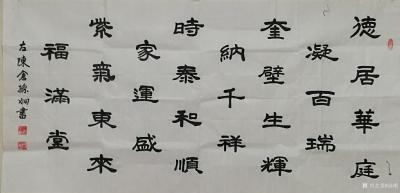 德居華庭
凝百瑞
奎壁生輝
納千祥
時泰和順
家運盛
紫氣東來
福滿堂
左陳倉孫炯書